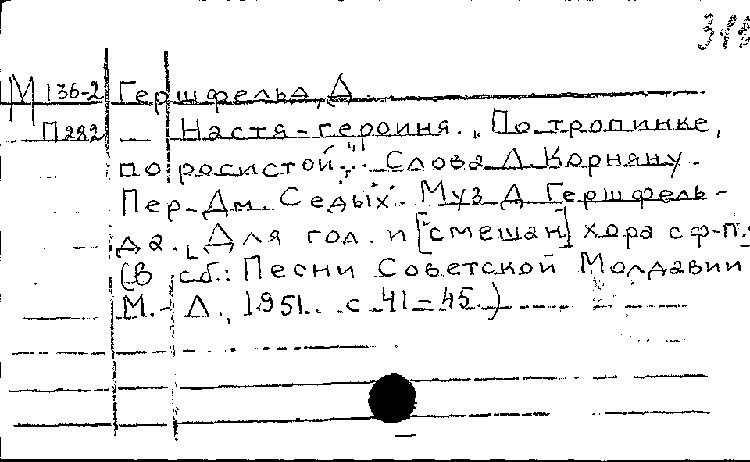 М 136-2 Гершфельд, Д.
П282 Настя-героиня. „По тропинке,
по росистой...“ Слова Л. Корняну.
Пер. Дм. Седых. Муз. Д. Гершфель-
да. [Для гол. и [смешан] хора с ф-п.
(В сб.: Песни Советской Молдавии
М.-Л., 1951. с. 41-45.)